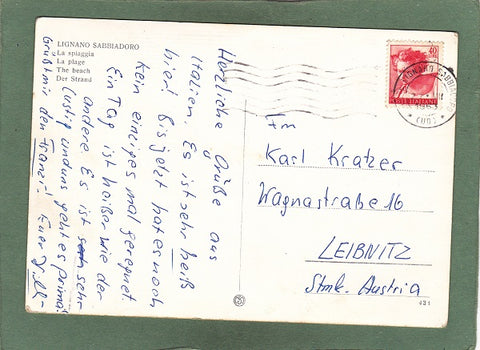 LIGNANO SABBIADORO
La spiaggia
La plage
The beach
Der Strand
Herzliche Grüße aus
Italien. Es ist sehr heiß
hier! Bis jetzt hat es noch
kein einziges mal geregnet.
Ein Tag ist heißer wie der
andere. Es ist sehr
lustig und uns geht es prima!
Grüßt mir den Franz! Euer
40
POSTE ITALIANE
LIGNANO SABBIADORO
(UD)
Fm
Karl Kratzer
Wagnastraße 16
LEIBNITZ
Stmk. Austria